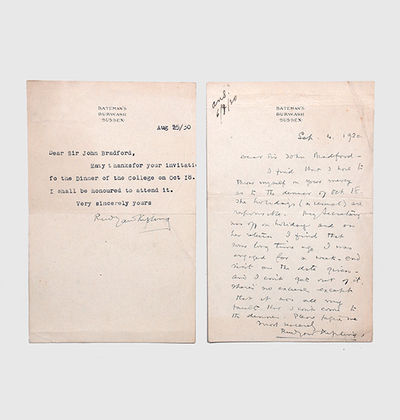 BATEMAN'S
BURWASH
SUSSEX
Aug 25/30
Dear Sir John Bradford,
Many thanksfor your invitati
fo the Dinner of the College on Oct 18.
I shall be honoured to attend it.
Very sincerely yours
Rudyard Kipling
ans.
6/9/30
BATEMAN'S
BURWASH
SUSSEX
Sep. 4. 1930
Dear Sir John Bradford-
I find that I have to
throw myself on your mercy
as to the dinner of Oct 18.
The holidays (as usual) are
responsible. My Secretary
was off on holiday and on
her return I find that
some long time ago I was
engaged for a week-end
visit on the date given
and I can't get out of it.
There's no excuse except
that it was all my
fault that I can't come to
the dinner. Please forgive me
Most sincerely
Rudyard Kipling